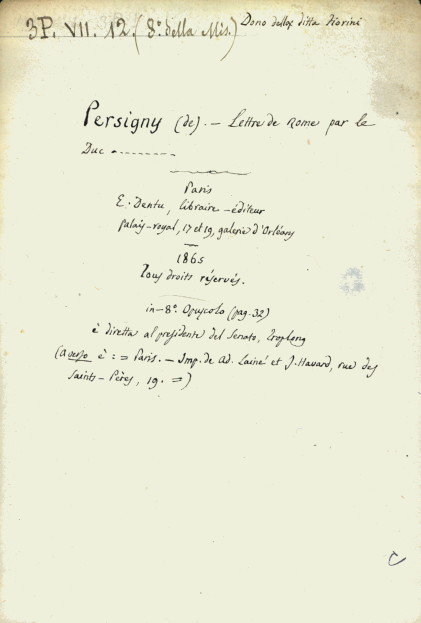 3P. VII. 12. (8º. della Mis.)
Dono della ditta Fiorini
Persigny (de). – Lettre de Rome par le
Duc ..........
Paris
E. Dentu, libraire-éditeur
Palais-royal, 17 et 19, galerie d'Orléans
1865
Tous droits réservés.
in-8º. Opuscolo (pag. 32)
è diretta al presidente del Senato, Troplong
(a verso è : = Paris. – Imp. de Ad. Lainé et J. Havard, rue des
Saints-Pères, 19. =)
C